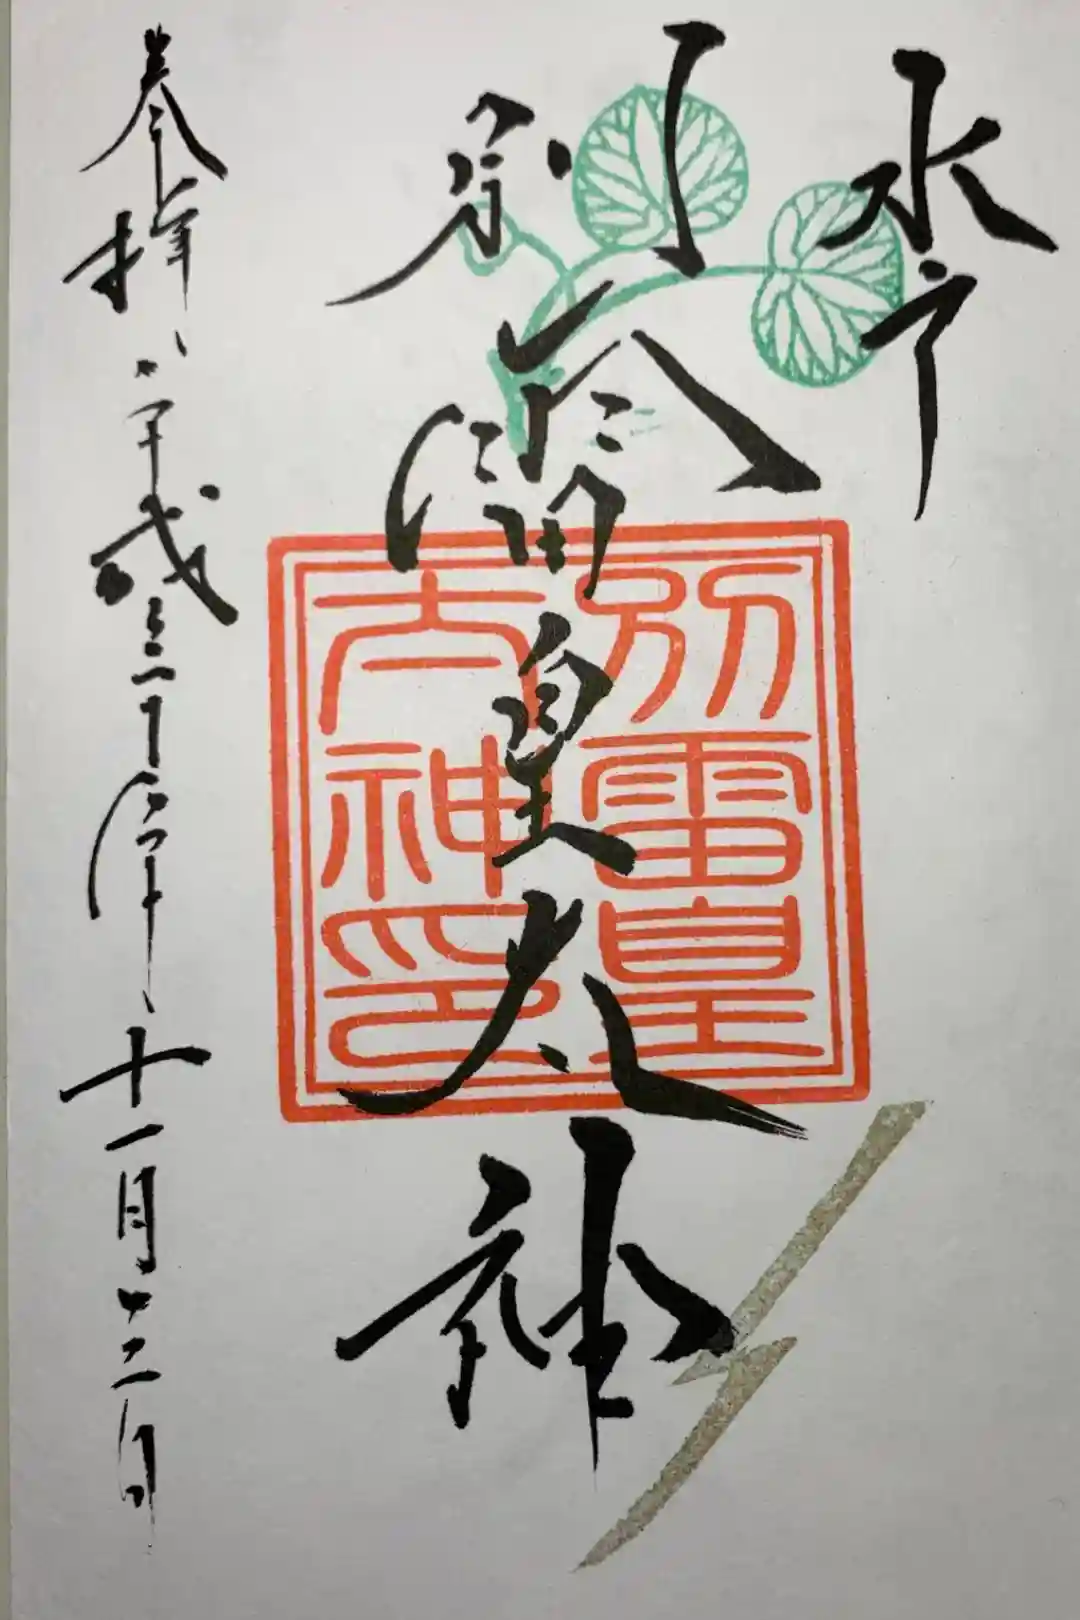 水戸
別雷皇太神
別雷皇
太神印
奉拝
平成三十年十一月十二日